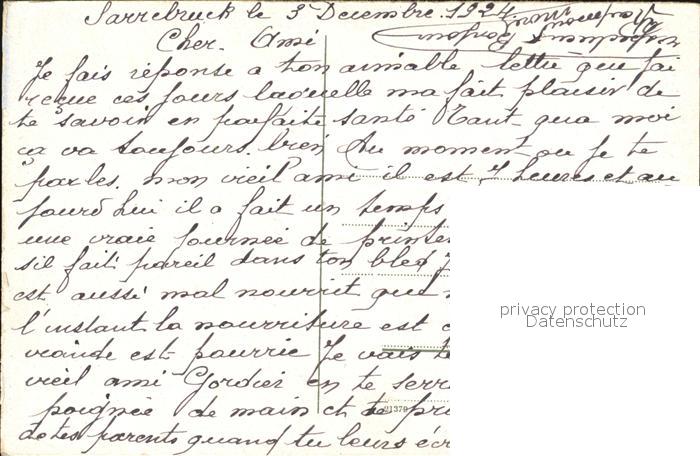 Sarrebruck le 3 Decembre. 1924.
Cher. Ami
Je fais réponse a ton aimable lettre que jai
reçue ces jours laquelle ma fait plaisir de
te savoir en parfaite santé Tant qua moi
ça va toujours. bien Au moment ou je te
parles. mon vieil ami il est 7 heures et au
jourd hui il a fait un temps
une vraie journée de printe
sil fait pareil dans ton bled
est aussi mal nourrit que
l'instant la nourriture est
viande est pourrie Je vais te
vieil ami Gordier en te serr
poignée de main et te pr
de tes parents quand tu leurs écr
21379
privacy protection
Datenschutz